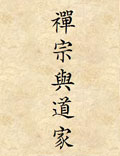 禪宗與道家